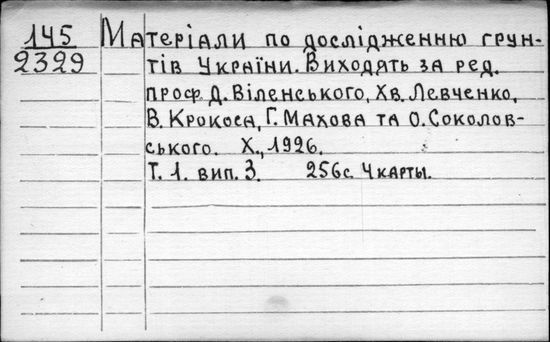 145
2329
Матеріали по дослідженню ґрун-
тів України. Виходять за ред.
проф. Д. Віленського, Хв. Левченко,
В. Крокоса, Г. Махова та О. Соколов-
ського. Х., 1926.
Т. 1. вип. 3. 256с. 4 карты.